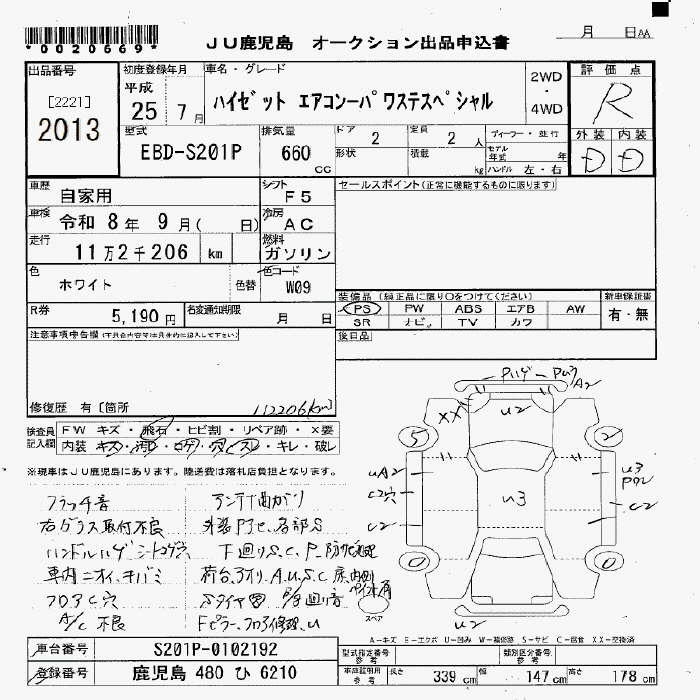 *0020669*
JU鹿児島 オークション出品申込書
月 日AA
出品番号
[2221]
2013
初度登録年月
平成
25年 7月
車名・グレード
ハイゼット エアコンーパワステスペシャル
2WD
・
4WD
評価点
R
外装 内装
D D
型式
EBD-S201P
排気量
660
CC
ドア 2
定員 2人
形状
積載 kg
ディーラー・並行
モデル年式 年
ハンドル 左・右
車歴
自家用
シフト
F5
車検
令和 8年 9月( 日)
冷房
AC
走行
11万2千206 km
燃料
ガソリン
色
ホワイト
色替
色コード
W09
R券
5,190円
名変通知期限
月 日
セールスポイント(正常に機能するものに限ります)
装備品(純正品に限り○をつけてください)
新車保証書
PS PW ABS エアB AW
SR ナビ TV カワ
有・無
後日品
注意事項申告欄(不具合内容は具体的に記入して下さい)
修復歴 有〔箇所
112206km〕
検査員記入欄
FW キズ・飛石・ヒビ割・リペア跡・×要
内装・キズ・汚レ・コゲ・穴・ビスレ・キレ・破レ
※現車はJU鹿児島にあります。陸送費は落札店負担となります。
フラッチ音
右ガラス取付不良
ハンドルハゲ シートコゲ穴
車内ニオイ、キバミ
フロアC穴
A/C不良
アンテナ曲がり
外装Pアセ、各部S
下廻りS.C.P.防サビ処理
荷台、アオリA.U.S.C
Fピラー、フロア修理、U
Pハゲ
Pひ3
A2
XX
U2
5
2
UA2
C2穴
C2
U3
U3
P02
C2
0
0
U2
スペア
A-キズ E-エクボ U-凹み W-補修跡 S-サビ C-腐食 XX-交換済
車台番号
S201P-0102192
登録番号
鹿児島 480 ひ 6210
型式指定番号
参考
類別区分番号
参考
車庫証明用
参考
長さ 339cm
幅 147cm
高さ 178cm